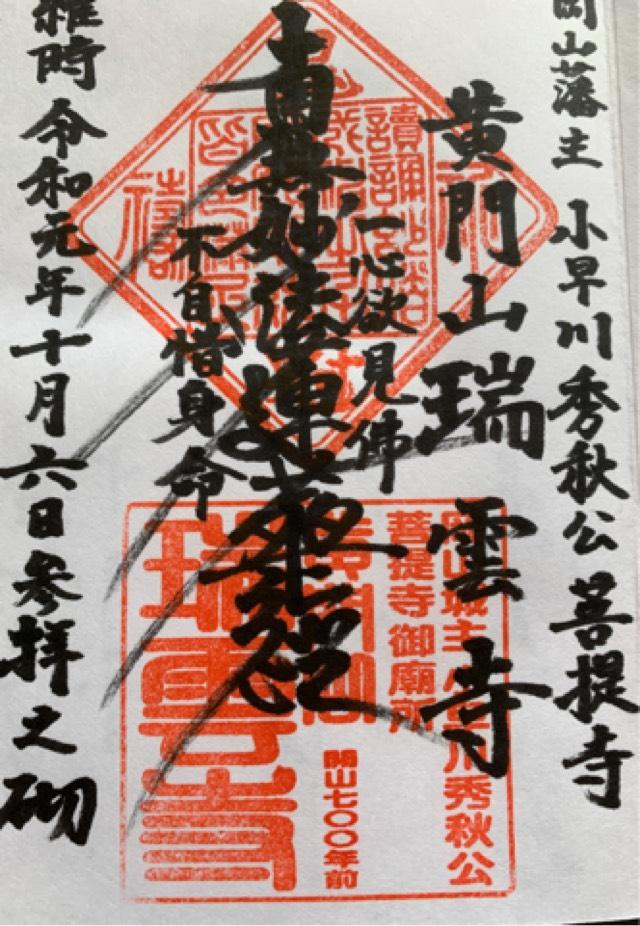 岡山藩主 小早川秀秋公 菩提寺
黄門山瑞雲寺
一心欲見佛
南無妙法蓮華経
不自惜身命
維時令和元年十月六日参拝之砌
岡山城主小早川秀秋公
菩提寺御廟所
開山七〇〇年前
黄門山
瑞雲寺